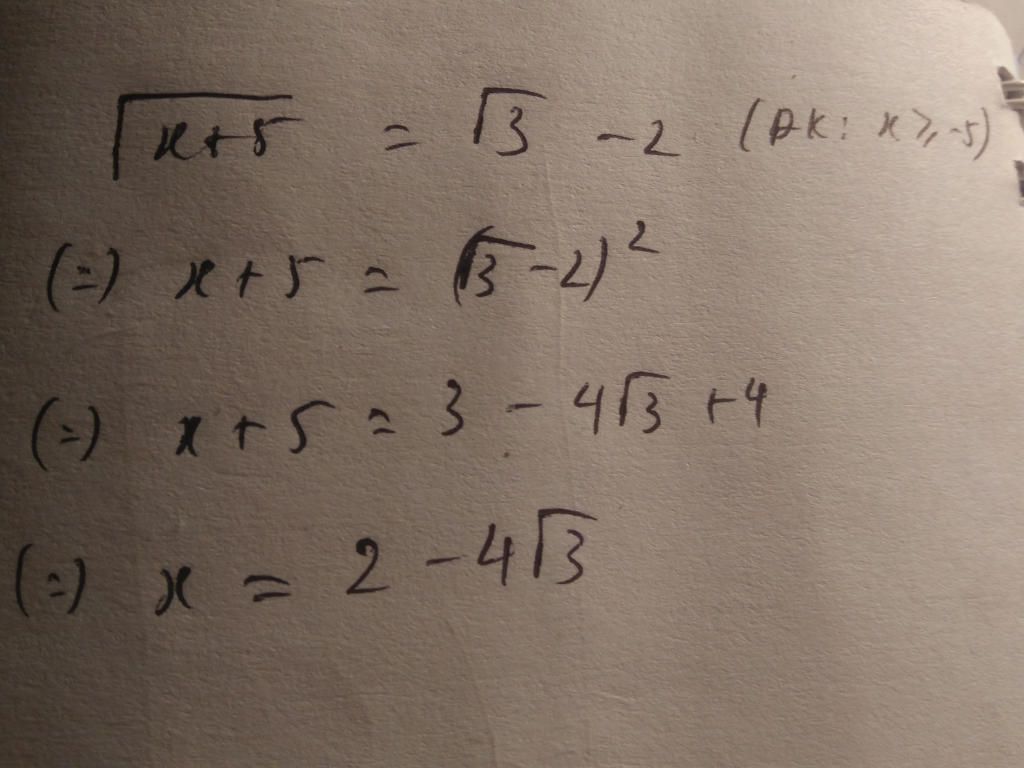 √x+5 = √3 - 2 (ĐK: x ≥ -5)
(=) x + 5 = (√3 - 2)²
(=) x + 5 = 3 - 4√3 + 4
(=) x = 2 - 4√3